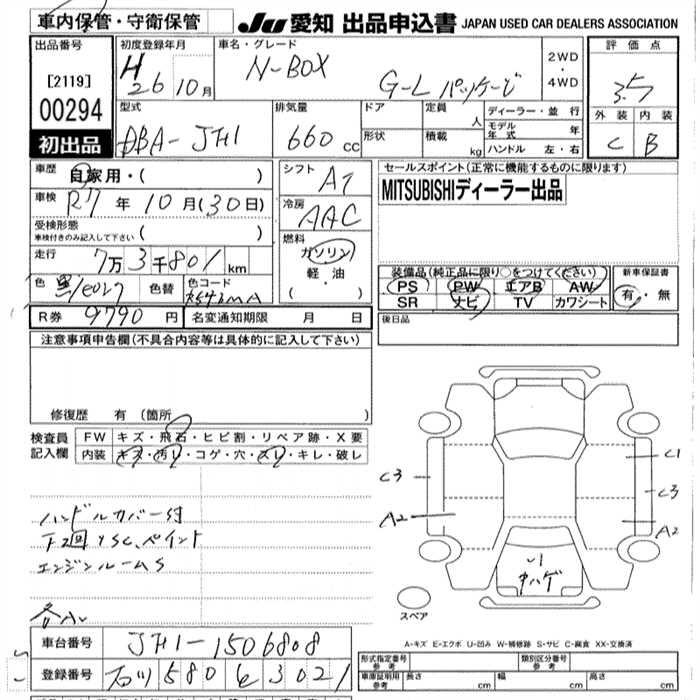 車内保管・守衛保管
JU 愛知 出品申込書 JAPAN USED CAR DEALERS ASSOCIATION
出品番号
[2119]
00294
初出品
初度登録年月
H26 10月
車名・グレード
N-BOX G-L パッケージ
2WD
・
4WD
評価点
3.5
外装 内装
C B
型式
DBA-JH1
排気量
660 cc
ドア
形状
定員 人
積載 kg
ディーラー・並行
モデル年式 年
ハンドル 左・右
車歴 自家用・( )
車検 R7年10月(30日)
受検形態
車検付きのみ記入して下さい ( )
走行 7万3千801km
色 黒 色替 色コード
シフト AT
冷房 AAC
燃料
ガソリン
軽・油
( ・ )
セールスポイント(正常に機能するものに限ります)
MITSUBISHIディーラー出品
装備品(純正品に限り○をつけてください)
PS PW エアB AW
SR ナビ TV カワシート
新車保証書
有・無
R券 9790円 名変通知期限 月 日
後日品
注意事項申告欄(不具合内容等は具体的に記入して下さい)
修復歴 有(箇所 )
検査員記入欄
FW キズ・飛石・ヒビ割・リペア跡・X要
内装 キズ・汚レ・コゲ・穴・スレ・キレ・破レ
ハンドルカバー付
エンジンルームS
各A
C3
A2
C1
C3
A2
U1
スペア
A-キズ E-エクボ U-凹み W-補修跡 S-サビ C-腐食 XX-交換済
車台番号 JH1-1506808
登録番号 石川 580 3021
形式指定番号 参考
類別区分番号 参考
車庫証明用 参考 長さ cm 幅 cm 高さ cm